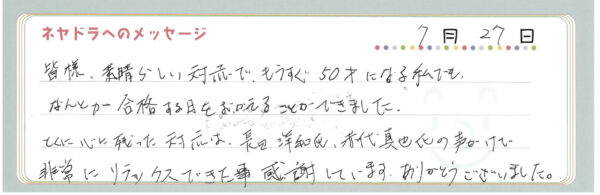 ネヤドラへのメッセージ
7月27日
皆様、素晴らしい対応で、もうすぐ50才になる私でも、
なんとか合格する日をむかえることができました。
とくに心に残った対応は、長田洋和氏、有代真也氏の声かけで
非常にリラックスできた事感謝しています。ありがとうございました。